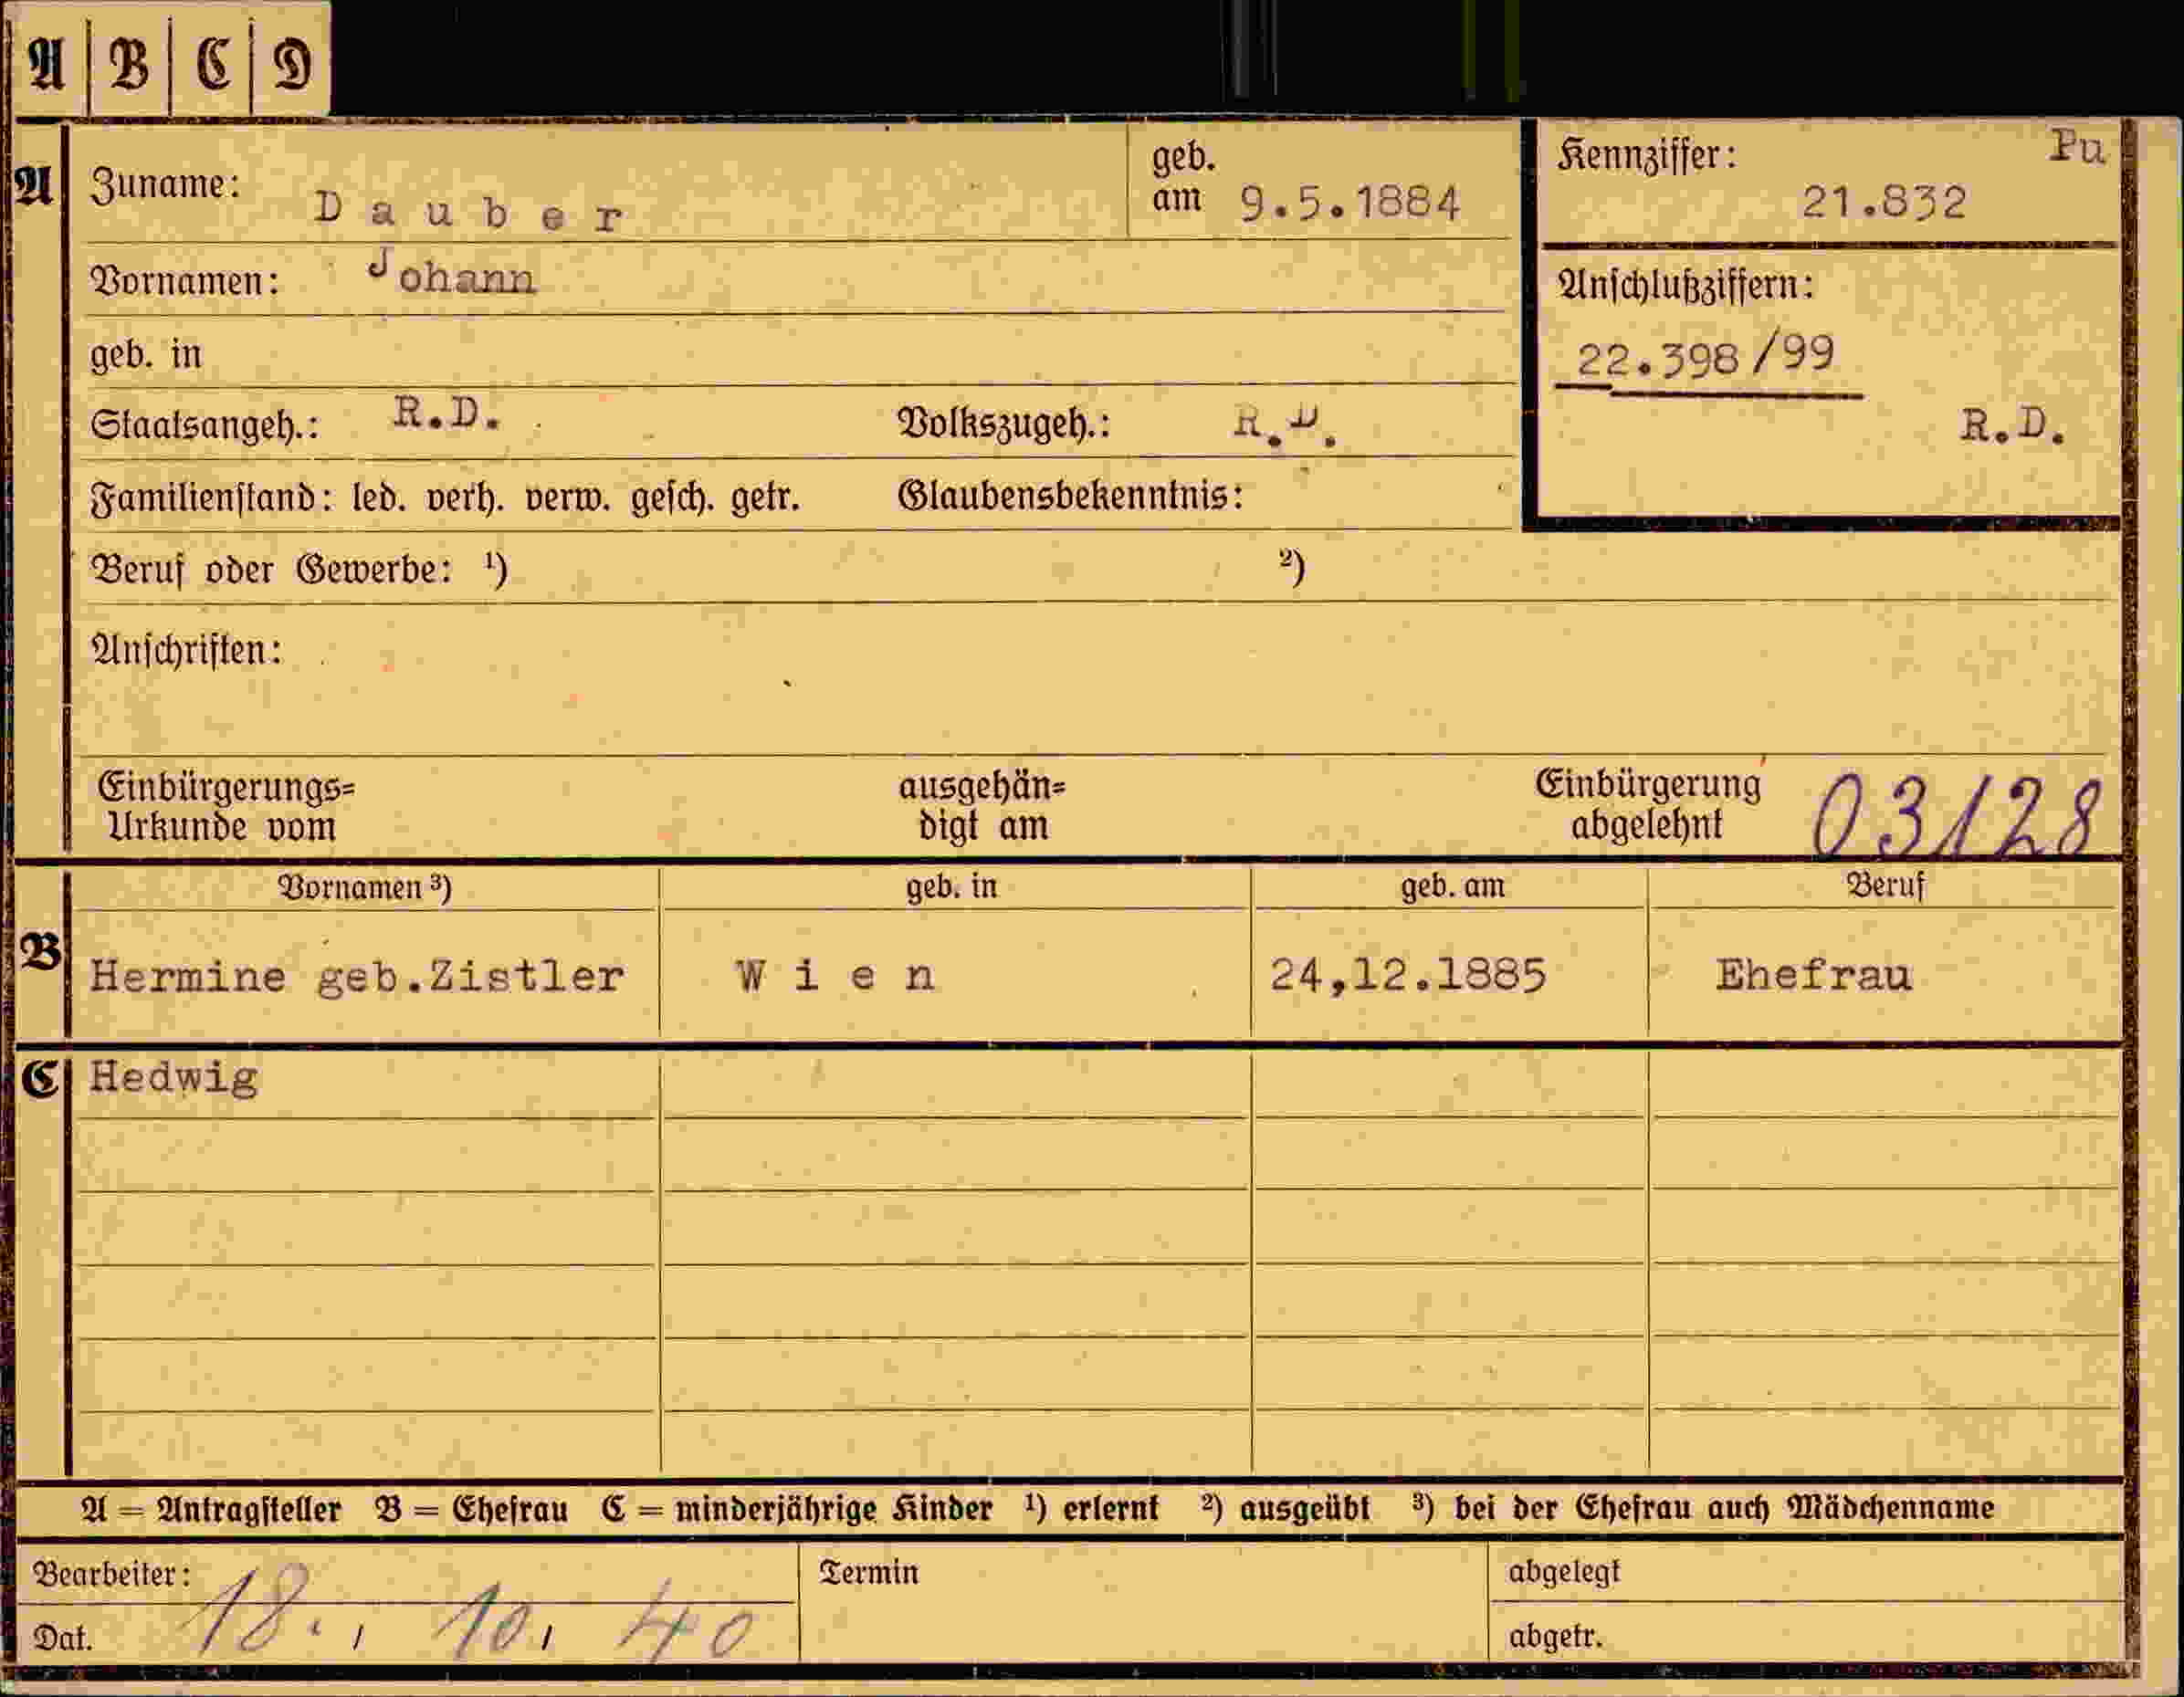 A B C D
A Zuname: Dauber geb. am 9.5.1884 Kennziffer: Pu 21.832
Vornamen: Johann Anschlußziffern:
geb. in 22.398/99
Staatsangeh.: R.D. Volkszugeh.: R.D. R.D.
Familienstand: led. verh. verw. gesch. getr. Glaubensbekenntnis:
Beruf oder Gewerbe: ¹) ²)
Anschriften:
Einbürgerungs= ausgehän= Einbürgerung 03128
Urkunde vom digt am abgelehnt
Vornamen ³) geb. in geb. am Beruf
B Hermine geb.Zistler Wien 24,12.1885 Ehefrau
C Hedwig
A = Antragsteller B = Ehefrau C = minderjährige Kinder ¹) erlernt ²) ausgeübt ³) bei der Ehefrau auch Mädchenname
Bearbeiter: Termin abgelegt
Dat. 18. 10. 40 abgetr.